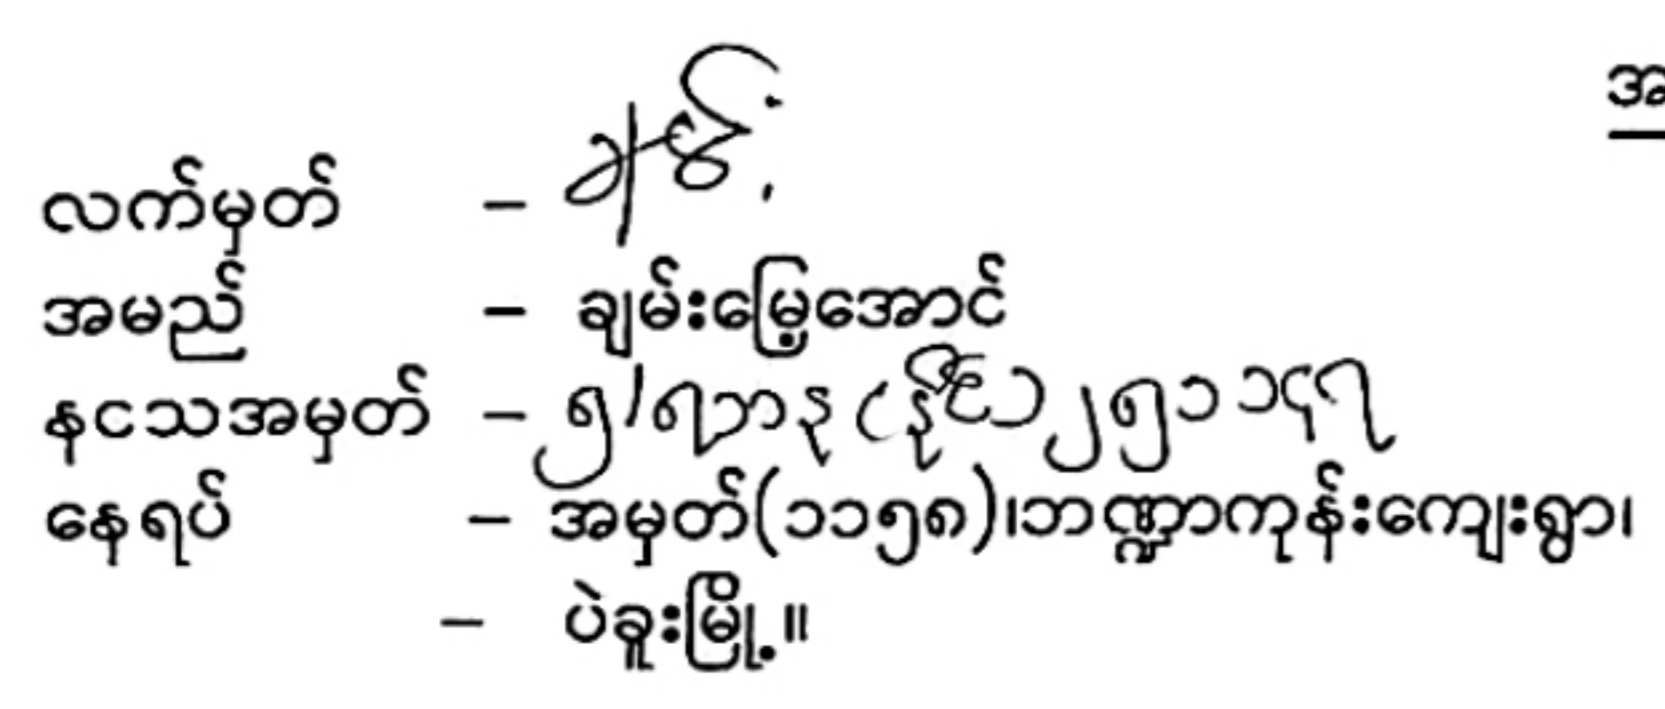 အ
လက်မှတ် –
အမည် – ချမ်းမြေ့အောင်
နငသအမှတ် – ၅/ရဘန (နိုင်) ၂၅၁၁၄၇
နေရပ် – အမှတ်(၁၁၅၈)၊ဘဏ္ဍာကုန်းကျေးရွာ၊
– ပဲခူးမြို့။